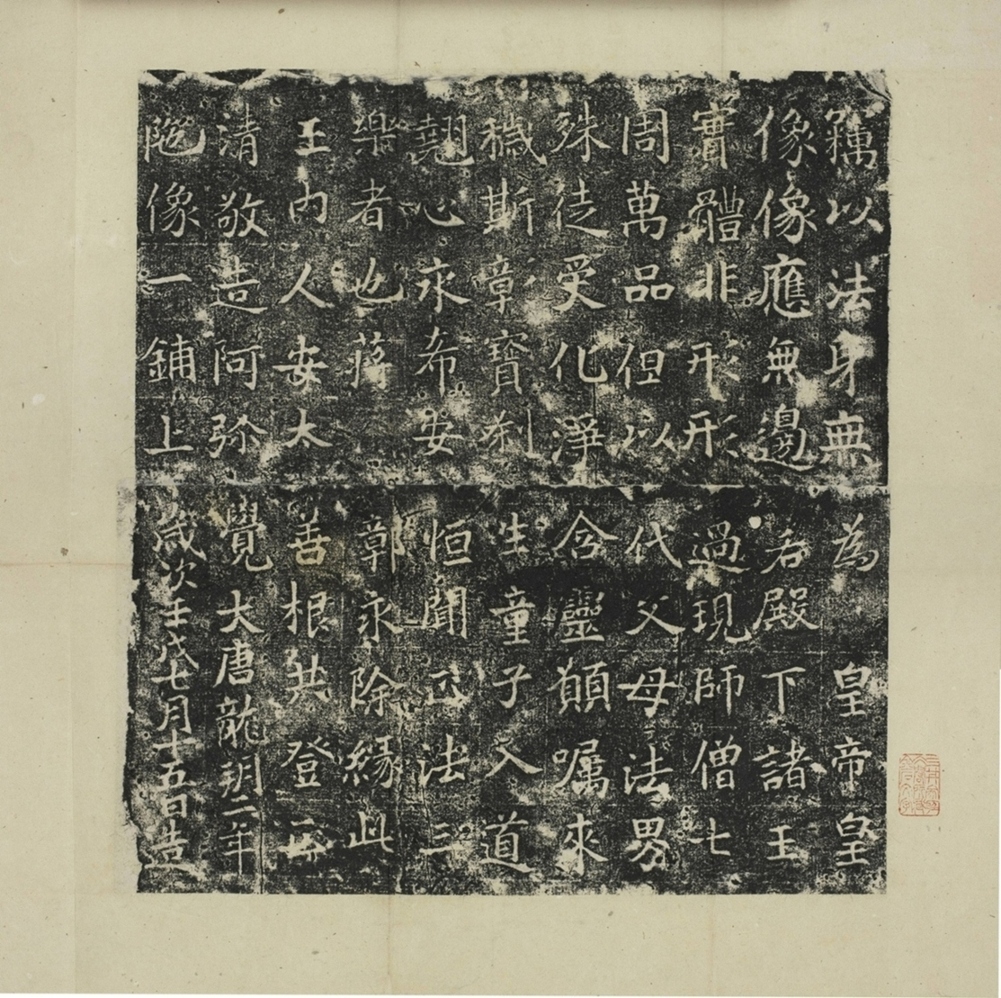 竊以法身無
像像應無邊
實體非形形
周萬品但以
殊徒受化淨
穢斯章寶刹
翹心永希安
樂者也蔣
王內人安太
清敬造阿弥
陁像一鋪上
為 皇帝皇
后殿下諸王
過現師僧七
代父母法界
含靈願囑來
生童子入道
恒聞正法三
鄣永除緣此
善根共登正
覺 大唐龍朔二年
歲次壬戌七月十五日造